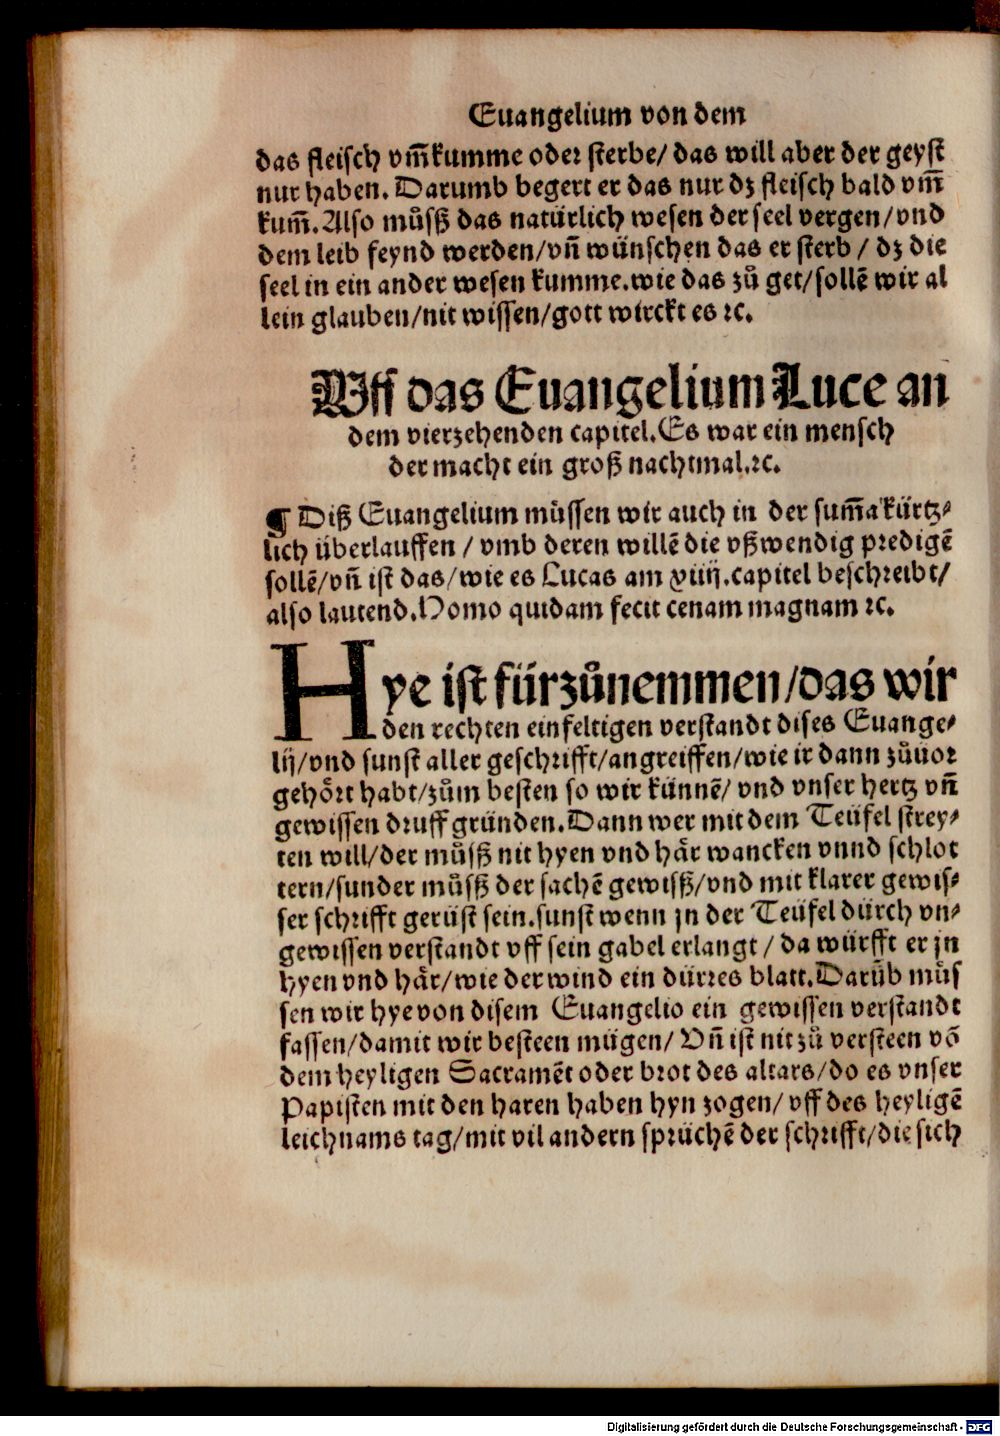 Euangelium von dem
das fleisch vm̃kumme oder sterbe/ das will aber der geyst
nur haben. Darumb begert er das nur dz fleisch bald vm̃
kum̃. Also můsß das natürlich wesen der seel vergen/vnd
dem leib feynd werden/vñ wünschen das er sterb / dz die
seel in ein ander wesen kumme.wie das zů get/sollẽ wir al
lein glauben/nit wissen/gott wirckt es ꝛc.
Vff das Euangelium Luce an
dem vierzehenden capitel. Es war ein mensch
der macht ein groß nachtmal.ꝛc.
¶ Diß Euangelium müssen wir auch in der sum̃a kürtz⸗
lich überlauffen / vmb deren willẽ die vßwendig predigẽ
sollẽ/vñ ist das/wie es Lucas am xiiij.capitel beschreibt/
also lautend. Homo quidam fecit cenam magnam ꝛc.
Hye ist fürzůnemmen/das wir
den rechten einfeltigen verstandt dises Euange⸗
lij/vnd sunst aller geschrifft/angreiffen/wie ir dann zůuor
gehȯrt habt/zům besten so wir künnẽ/ vnd vnser hertz vñ
gewissen druff gründen. Dann wer mit dem Teüfel strey⸗
ten will/der můsß nit hyen vnd här wancken vnnd schlot
tern/sunder můsß der sachẽ gewisß/vnd mit klarer gewis⸗
ser schrifft gerüst sein. sunst wenn jn der Teüfel durch vn⸗
gewissen verstandt vff sein gabel erlangt / da würfft er jn
hyen vnd här/wie der wind ein dürres blatt. Darũb müs
sen wir hye von disem Euangelio ein gewissen verstandt
fassen/damit wir besteen mügen/ Vñ ist nit zů versteen võ
dem heyligen Sacramẽt oder brot des altars/do es vnser
Papisten mit den haren haben hyn zogen/ vff des heyligẽ
leichnams tag/mit vil andern sprüchẽ der schrifft/die sich
Digitalisierung gefördert durch die Deutsche Forschungsgemeinschaft - DFG